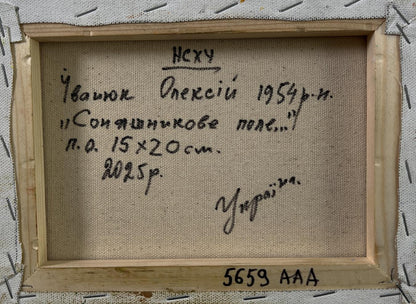 НСХУ
Іванюк Олексій 1954р.н.
"Соняшникове поле..."
п.о. 15×20см.
2025р.
Україна.
5659 ААА